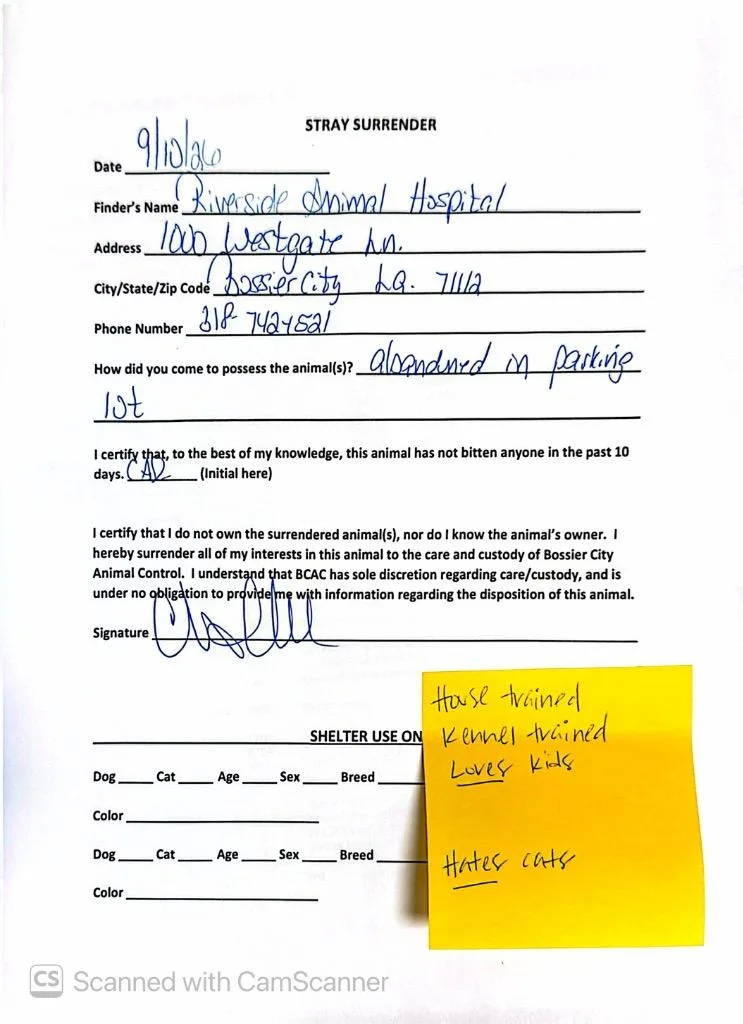 STRAY SURRENDER
Date 9/10/26
Finder's Name Riverside Animal Hospital
Address 1000 Westgate Ln.
City/State/Zip Code Bossier City La. 71112
Phone Number 318-7424521
How did you come to possess the animal(s)? abandned in parking
lot
I certify that, to the best of my knowledge, this animal has not bitten anyone in the past 10
days. CAD (Initial here)
I certify that I do not own the surrendered animal(s), nor do I know the animal's owner. I
hereby surrender all of my interests in this animal to the care and custody of Bossier City
Animal Control. I understand that BCAC has sole discretion regarding care/custody, and is
under no obligation to provide me with information regarding the disposition of this animal.
Signature
House trained
Kennel trained
Loves kids
Hates cats
SHELTER USE ON
Dog Cat Age Sex Breed
Color
Dog Cat Age Sex Breed
Color
CS Scanned with CamScanner